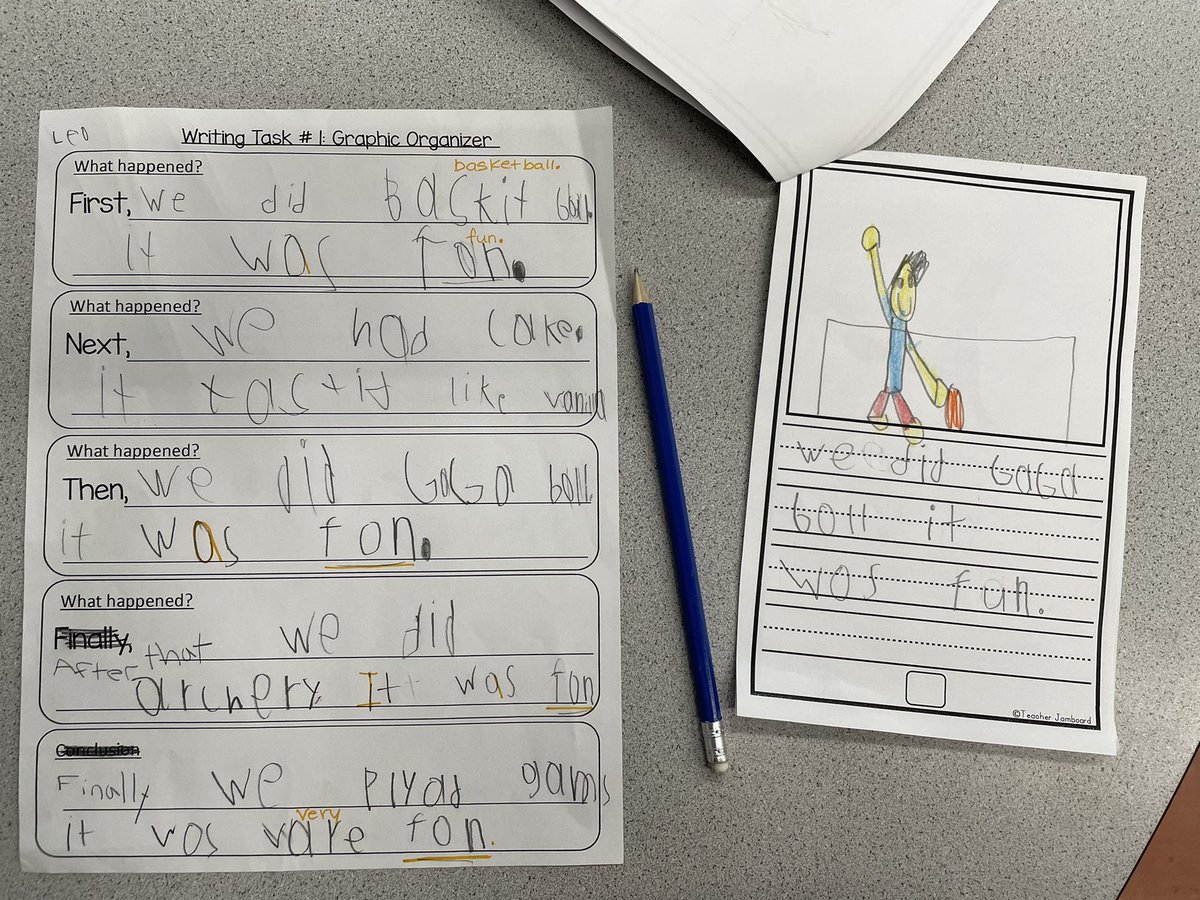 LEO
Writing Task # 1: Graphic Organizer
What happened?
basketball.
First, we did baskit ball.
fun.
it was fon.
What happened?
Next, we had cake.
it tastit like vanilla
What happened?
Then, we did GaGa ball.
it was fon.
What happened?
Finally,
After that we did
archery. It was fon
Conclusion
Finally we plyad gams
very
it wos vare fon.
we did GaGa
boll it
wos fon.
©Teacher Jamboard